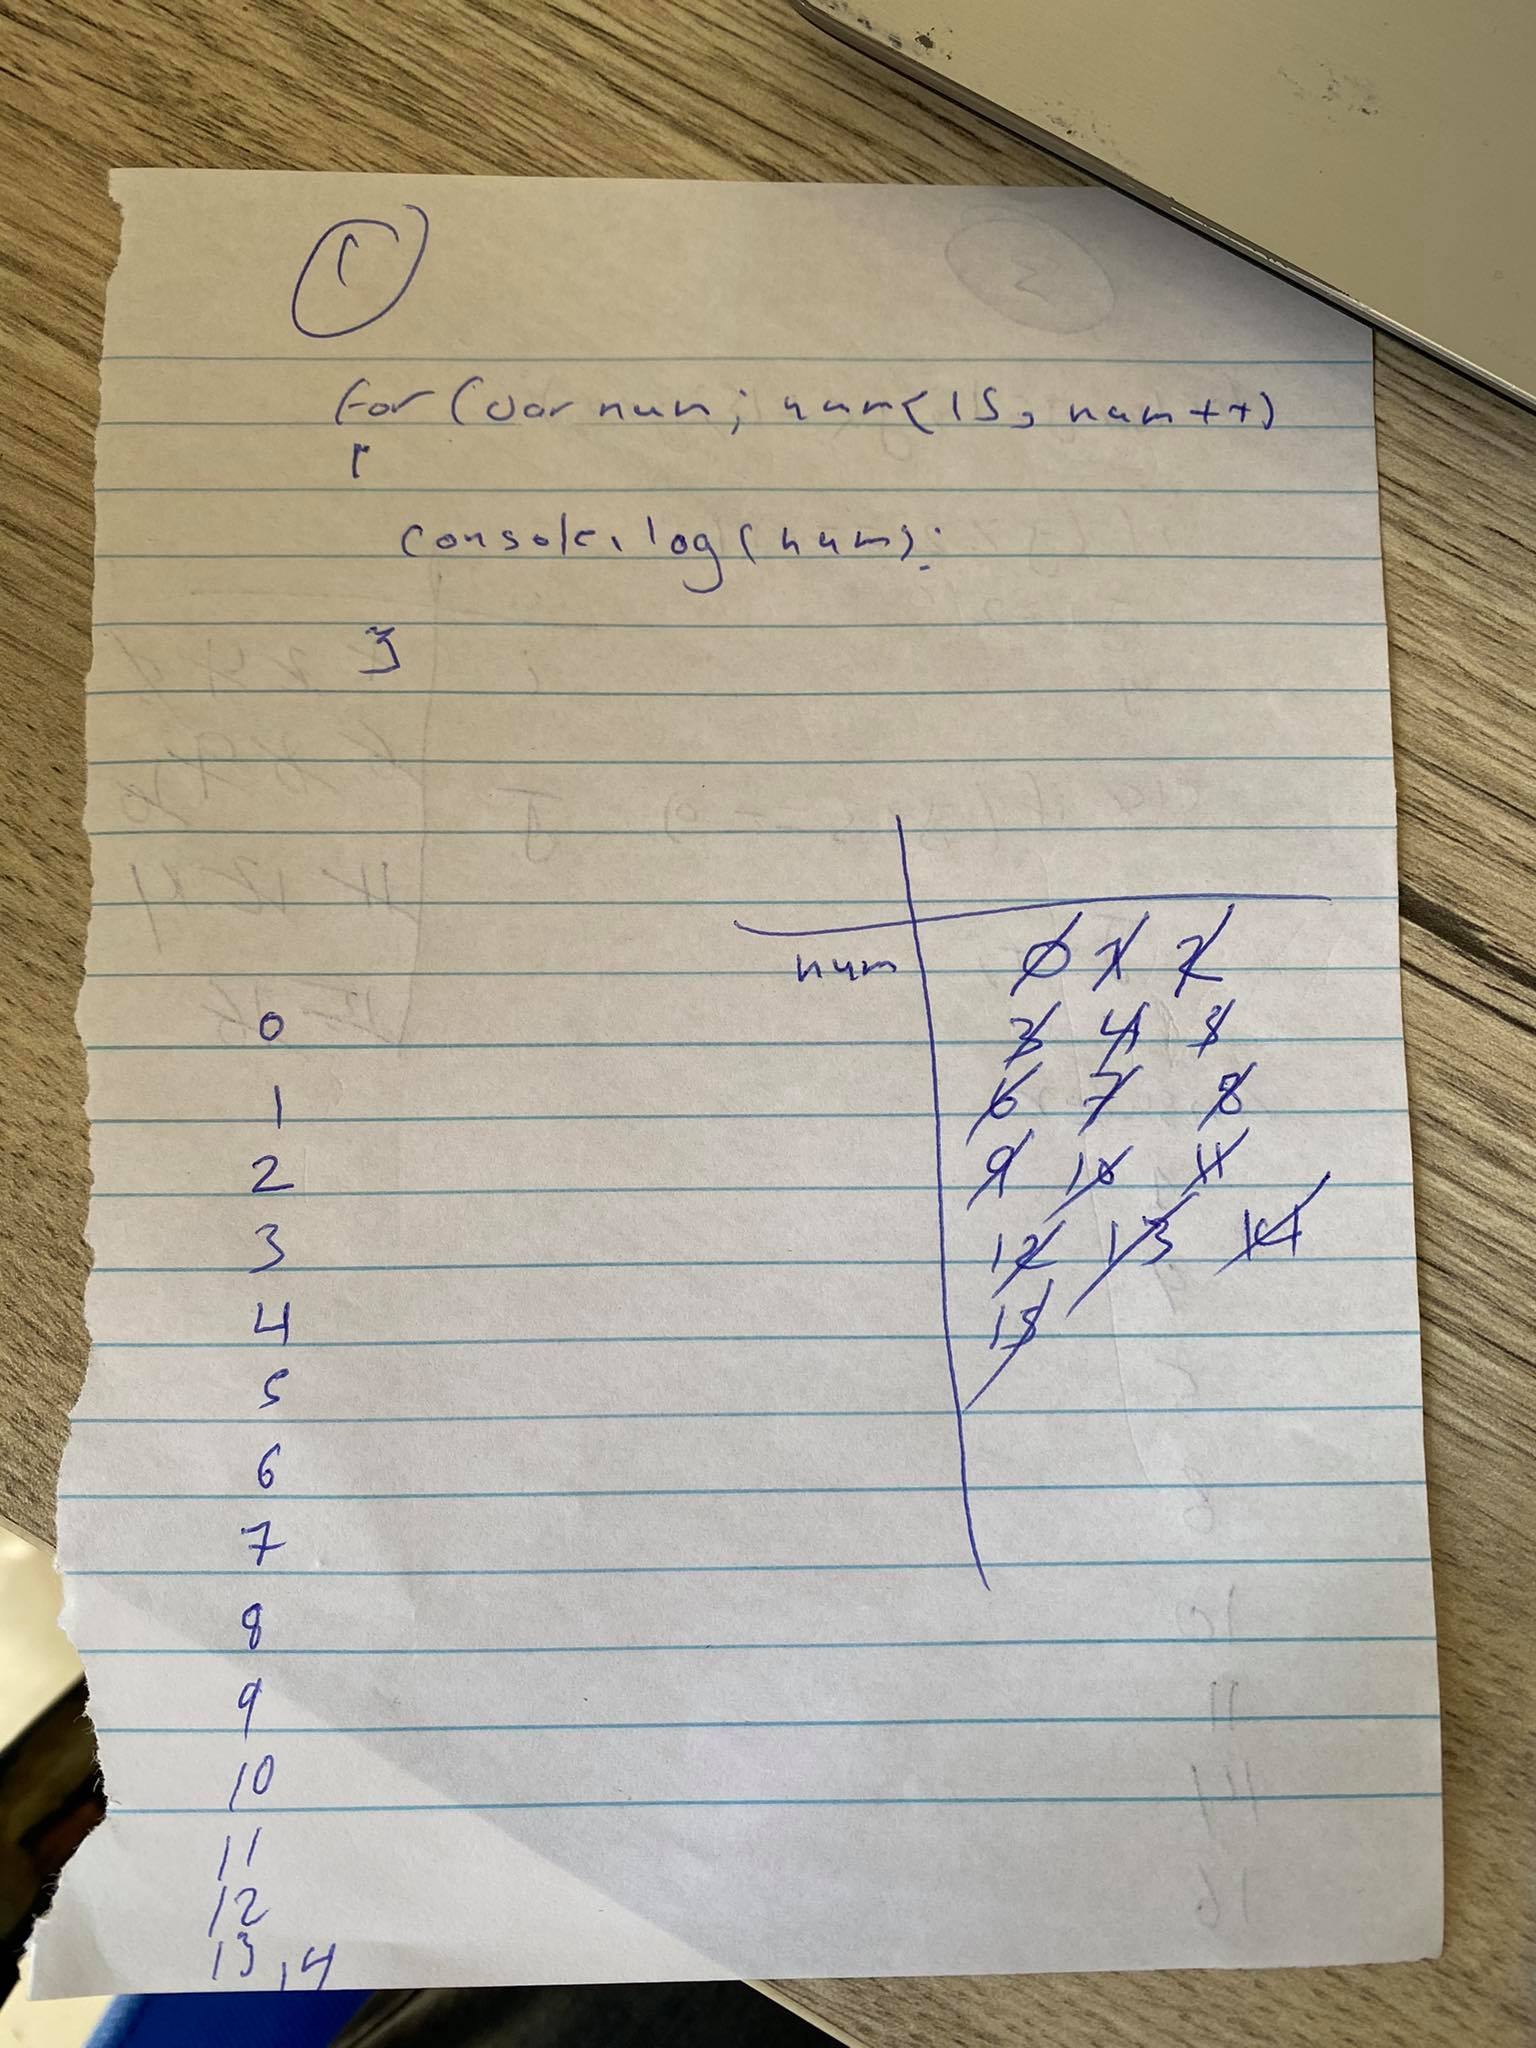 1
for (var num; num<15; num++)
{
console.log(num);
}
num 0 1 2
3 4 5
6 7 8
9 10 11
12 13 14
15
0
1
2
3
4
5
6
7
8
9
10
11
12
13 14